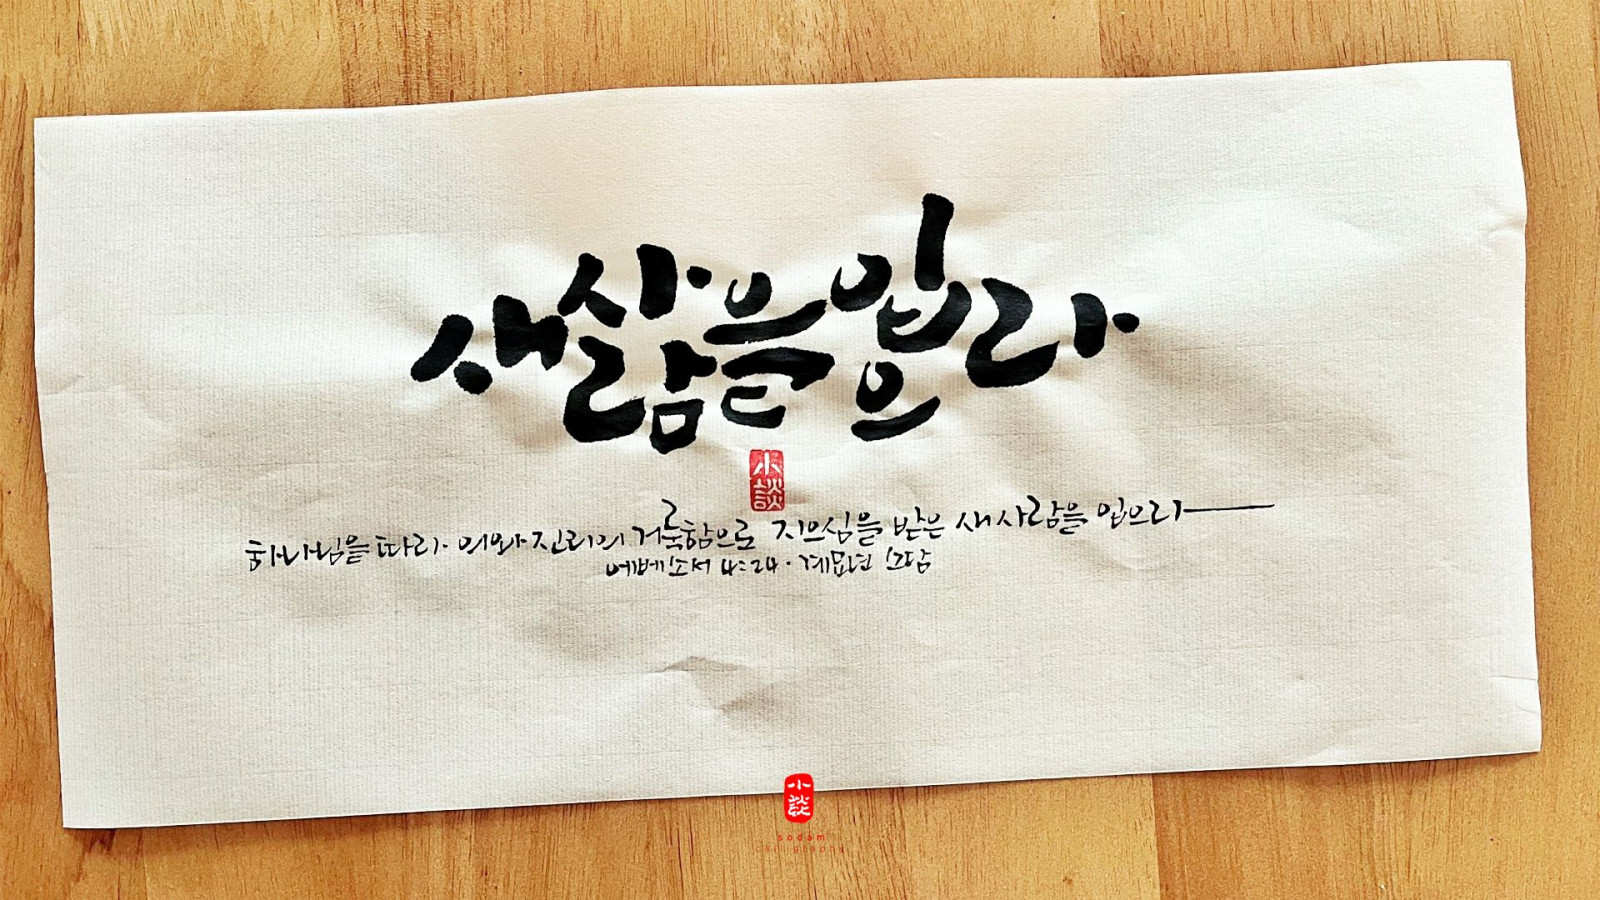 새사람을 입으라
小談
하나님을 따라 의와 진리의 거룩함으로 지으심을 받은 새사람을 입으라
에베소서 4:24. 계묘년 소담
小談
sodam
calligraphy